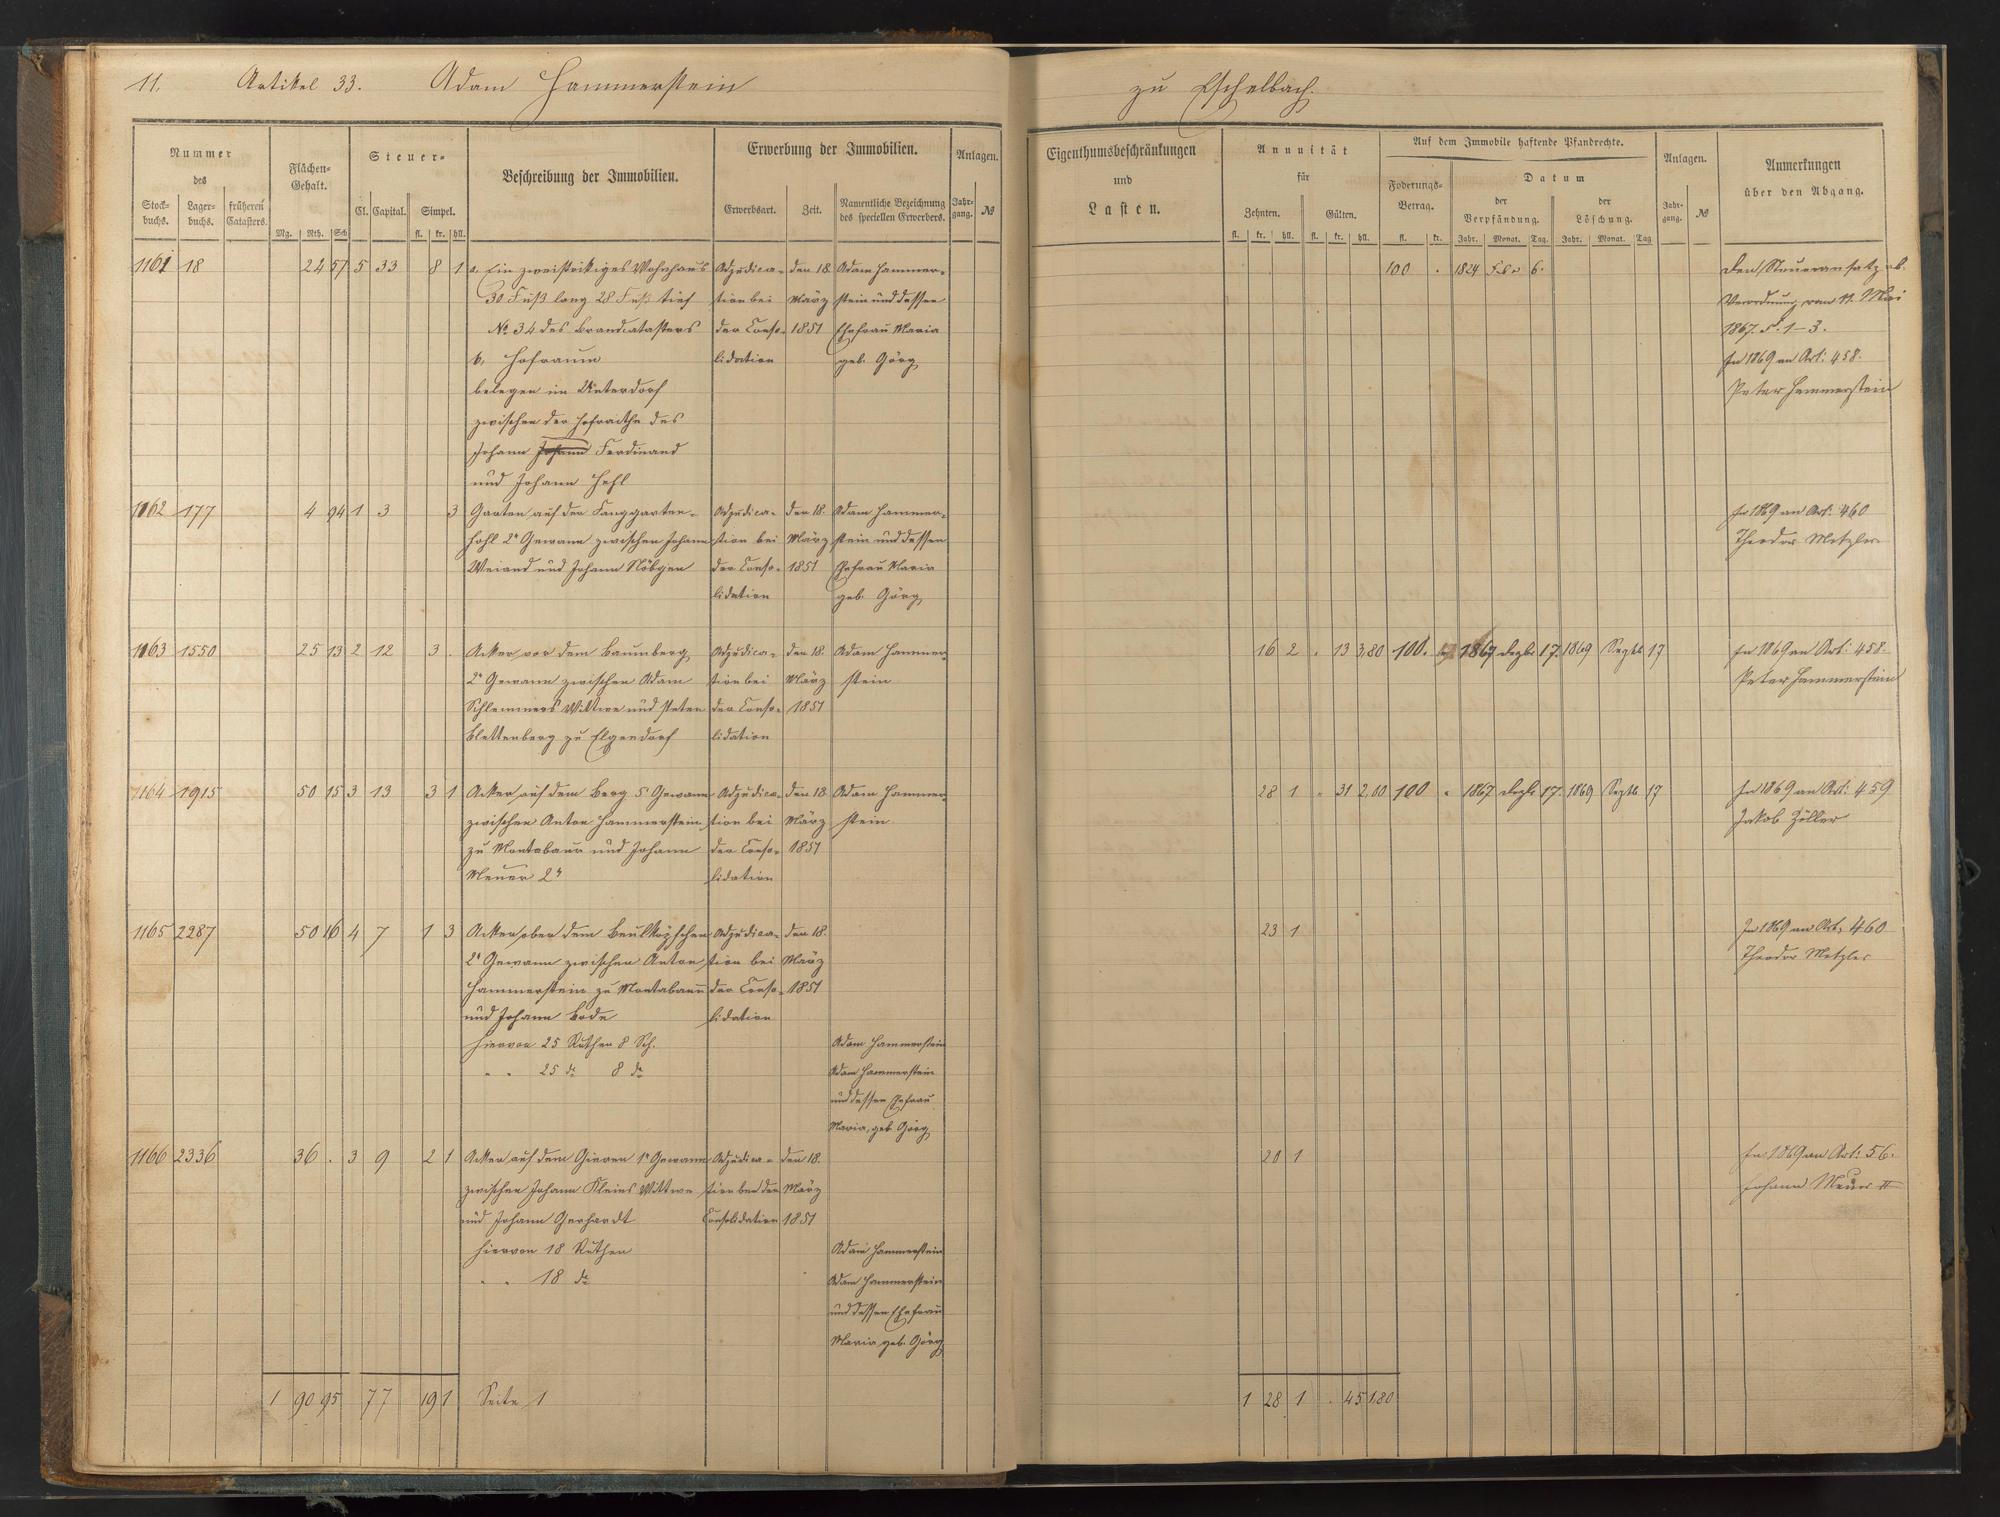 11. Artikel 33. Adam Hammerstein zu Eschelbach.
Nummer des
Stockbuchs. Lagerbuchs. früheren Catasters.
Flächen-Gehalt.
Mg. Rth. Sch.
Steuer-
Cl. Capital. Simpel.
fl. kr. hll.
Beschreibung der Immobilien.
Erwerbung der Immobilien.
Erwerbsart. Zeit. Namentliche Bezeichnung des speciellen Erwerbers.
Anlagen.
Jahrgang. №
Eigenthumsbeschränkungen und Lasten.
Annuität für
Zehnten. Gülten.
fl. kr. hll. fl. kr. hll.
Auf dem Immobile haftende Pfandrechte.
Foderungs-Betrag.
fl. kr.
Datum
der Verpfändung. der Löschung.
Jahr. Monat. Tag. Jahr. Monat. Tag
Anlagen.
Jahrgang. №
Anmerkungen über den Abgang.
1161 18 24 57 5 33 8 1 a, Ein zweistöckiges Wohnhaus Adjudica- den 18. Adam Hammer- 100 . 1824 Febr 6. den Steueransatz ab.
30 Fuß lang 28 Fuß tief tion bei März stein und dessen Verordnung vom 11. Mai
№ 34 des Brandcatasters der Conso- 1851 Ehefrau Maria 1867. §. 1-3.
b, Hofraum lidation geb. Görg In 1869 an Art: 458.
belegen im Unterdorf Peter Hammerstein
zwischen der Hofraithe des
Johann Johann Ferdinand
und Johann Hehl
1162 177 4 94 1 3 3 Garten auf der Langgarten- Adjudica- den 18. Adam Hammer- In 1869 an Art: 460
hohl 2r Gewann zwischen Johann tion bei März stein und dessen Theodor Metzler
Weiand und Johann Nöbgen der Conso- 1851 Ehefrau Maria
lidation geb. Görg
1163 1550 25 13 2 12 3 . Acker vor dem Baumberg Adjudica- den 18. Adam Hammer- 16 2 . 13 3,80 100. 1867 Dezbr 17. 1869 Septb 17 In 1869 an Art: 458.
2r Gewann zwischen Adam tion bei März stein Peter Hammerstein
Schlemmers Wittwe und Peter der Conso- 1851
Blettenberg zu Elgendorf lidation
1164 1915 50 15 3 13 3 1 Acker auf dem Berg 5r Gewann Adjudica- den 18 Adam Hammer- 28 1 . 31 2,00 100 . 1867 Dezbr 17. 1869 Septb 17 In 1869 an Art: 459
zwischen Anton Hammerstein tion bei März stein Jakob Zöller
zu Montabaur und Johann der Conso- 1851
Meuer 2r lidation
1165 2287 50 16 4 7 1 3 Acker ober dem Beulköpfchen Adjudica- den 18. 23 1 In 1869 an Art: 460
2r Gewann zwischen Anton tion bei März Theodor Metzler
Hammerstein zu Montabaur der Conso- 1851
und Johann Bode lidation
hiervon 25 Ruthen 8 Sch. Adam Hammerstein
" " 25 do 8 do Adam Hammerstein
und dessen Ehefrau
Maria, geb. Görg
1166 2336 36 . 3 9 2 1 Acker auf dem Gieren 1r Gewann Adjudica- den 18. 20 1 In 1869 an Art: 56.
zwischen Johann Kleins Wittwe tion bei der März Johann Meuer II
und Johann Gerhardt Consolidation 1851
hiervon 18 Ruthen Adam Hammerstein
" " 18 do Adam Hammerstein
und dessen Ehefrau
Maria geb. Görg
1 90 95 77 19 1 Seite 1 1 28 1 . 45 1,80